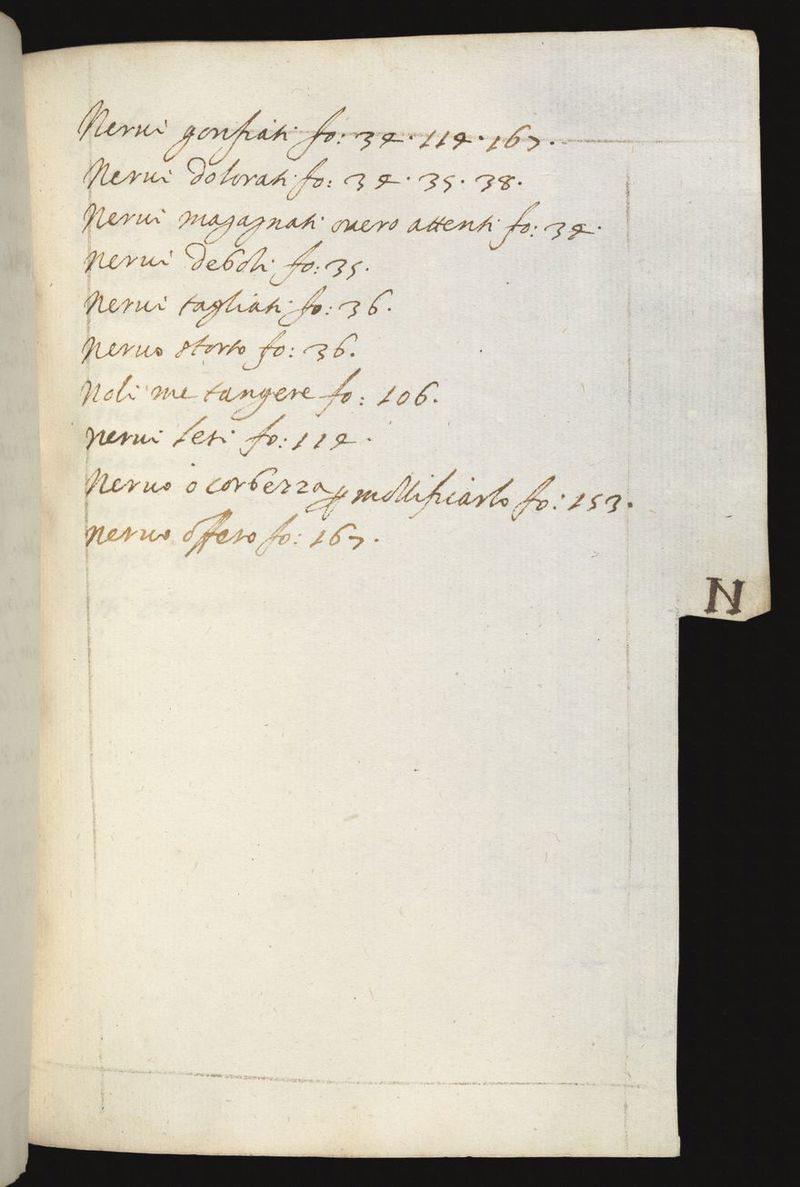 Nerui gonfiati fo: 34 · 114 · 167 ·
Nerui dolorati fo: 34 · 35 · 38 ·
Nerui magagnati ouero attenti fo: 34 ·
Nerui deboli fo: 35 ·
Nerui tagliati fo: 36 ·
Neruo storto fo: 36 ·
Noli me tangere fo: 106 ·
nerui lesi fo: 114 ·
Neruo o corbezza p mollificarlo fo: 153 ·
neruo offeso fo: 167 ·
N